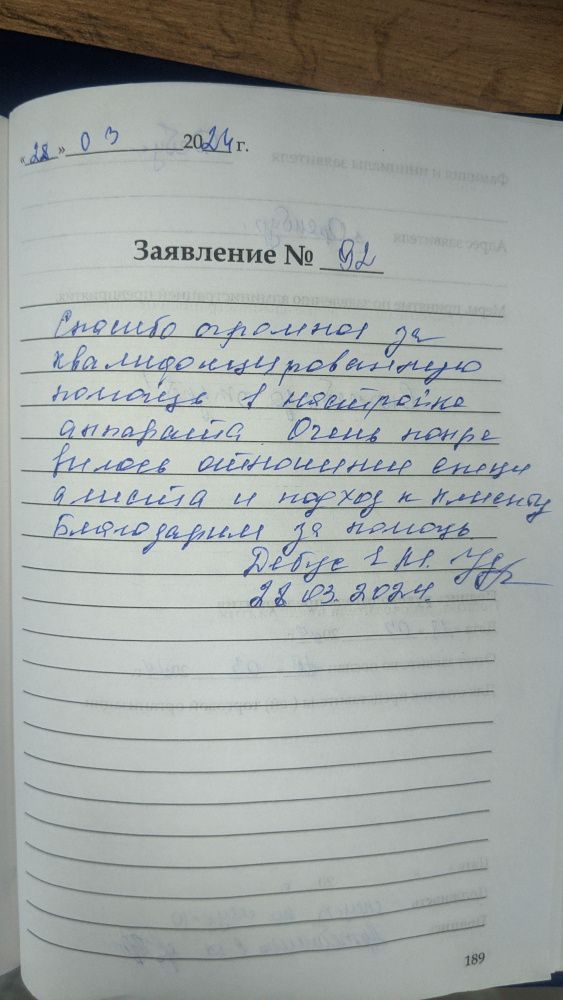 «28» 03 2024 г.
Заявление № 92
Спасибо огромное за
квалифицированную
помощь в настройке
аппарата. Очень понра
вилось отношение специ
алиста и подход к клиенту
Благодарим за помощь
Дебус
28.03.2024.
189